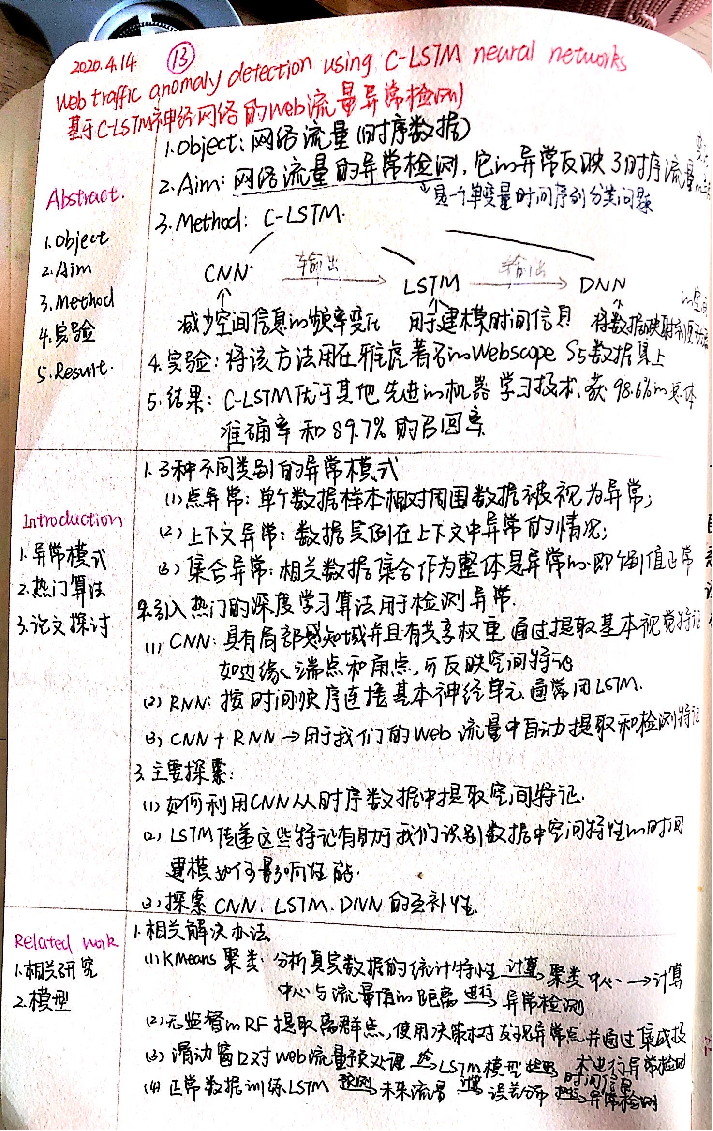 2020.4.14 ⑬
Web traffic anomaly detection using C-LSTM neural networks
基于C-LSTM神经网络的Web流量异常检测
Abstract.
1.Object
2.Aim
3.Method
4.实验
5.Result.
1.Object: 网络流量(时序数据)
2.Aim: 网络流量的异常检测, 它的异常反映了时序流量
是一个单变量时间序列分类问题
3.Method: C-LSTM.
CNN 输出 LSTM 输出 DNN
减少空间信息的频率变化 用于建模时间信息 将数据映射到
4.实验: 将该方法用在雅虎著名的Webscope S5数据集上
5.结果: C-LSTM优于其他先进的机器学习技术, 获98.6%的总体
准确率和89.7%的召回率.
Introduction
1.异常模式
2.热门算法
3.论文探讨
1.3种不同类别的异常模式
(1)点异常: 单个数据样本相对周围数据被视为异常;
(2)上下文异常: 数据实例在上下文中异常的情况;
(3)集合异常: 相关数据集合作为整体是异常的.即个别值正常
2.引入热门的深度学习算法用于检测异常.
(1) CNN: 具有局部感知域并且有共享权重 通过提取基本视觉特征
如边缘、端点和角点, 可反映空间特征
(2) RNN: 按时间顺序连接基本神经单元. 通常用LSTM.
(3) CNN + RNN → 用于我们的Web 流量中自动提取和检测特征
3.主要探索:
(1)如何利用CNN从时序数据中提取空间特征.
(2) LSTM传递这些特征有助于我们识别数据中空间特性的时间
建模如何影响性能.
(3)探索 CNN、LSTM、DNN 的互补性.
Related work
1.相关研究
2.模型
1.相关解决办法
(1) KMeans 聚类: 分析真实数据的统计特性 计算 聚类中心 → 计算
中心与流量值的距离 进行 异常检测
(2)无监督的RF提取离群点, 使用决策树发现异常点并通过集成技
术进行异常检测
(3) 滑动窗口对Web流量预处理 → LSTM模型 时间信息
(4) 正常数据训练LSTM 预测 未来流量 误差分布 异常检测